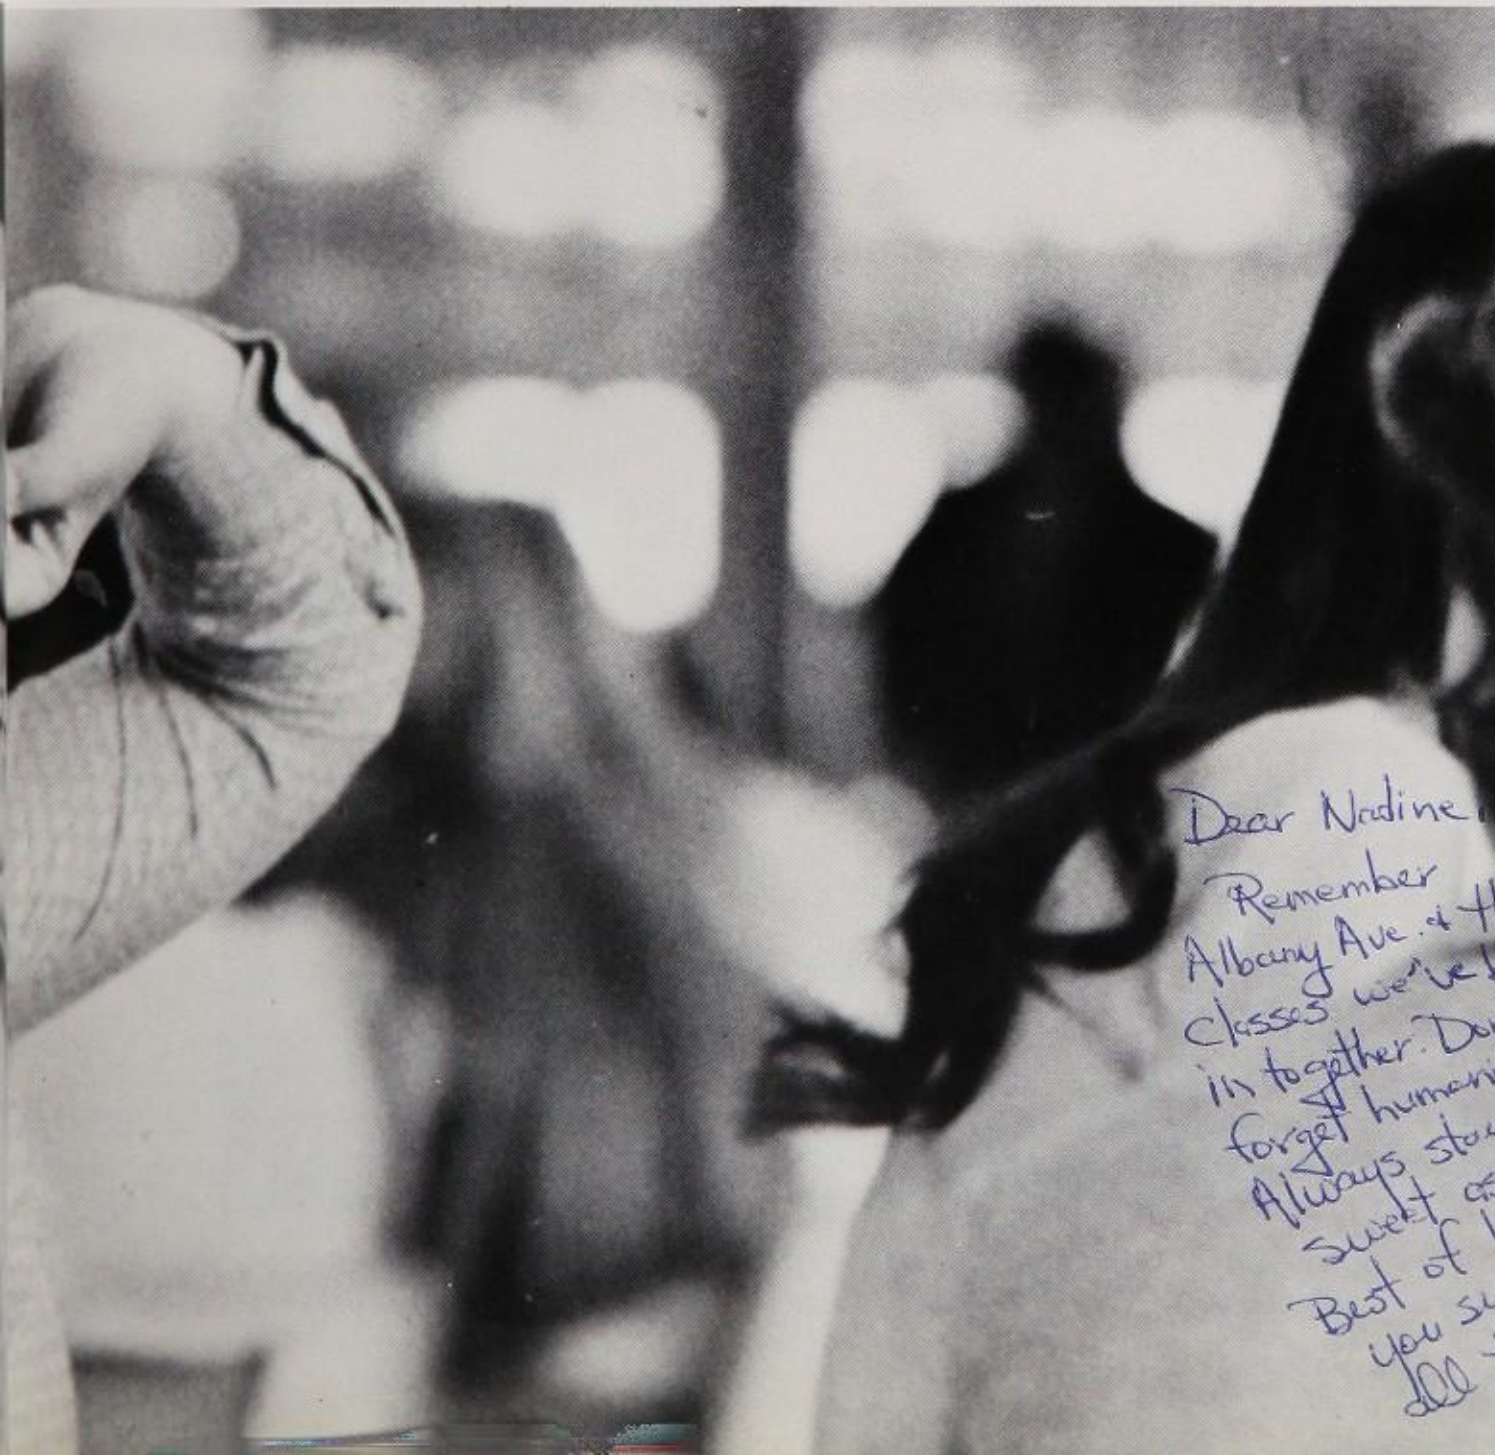 Dear Nadine,
Remember
Albany Ave. & th
classes we've
in together. Don
forget humani
Always stay
sweet as
Best of l
you su
all